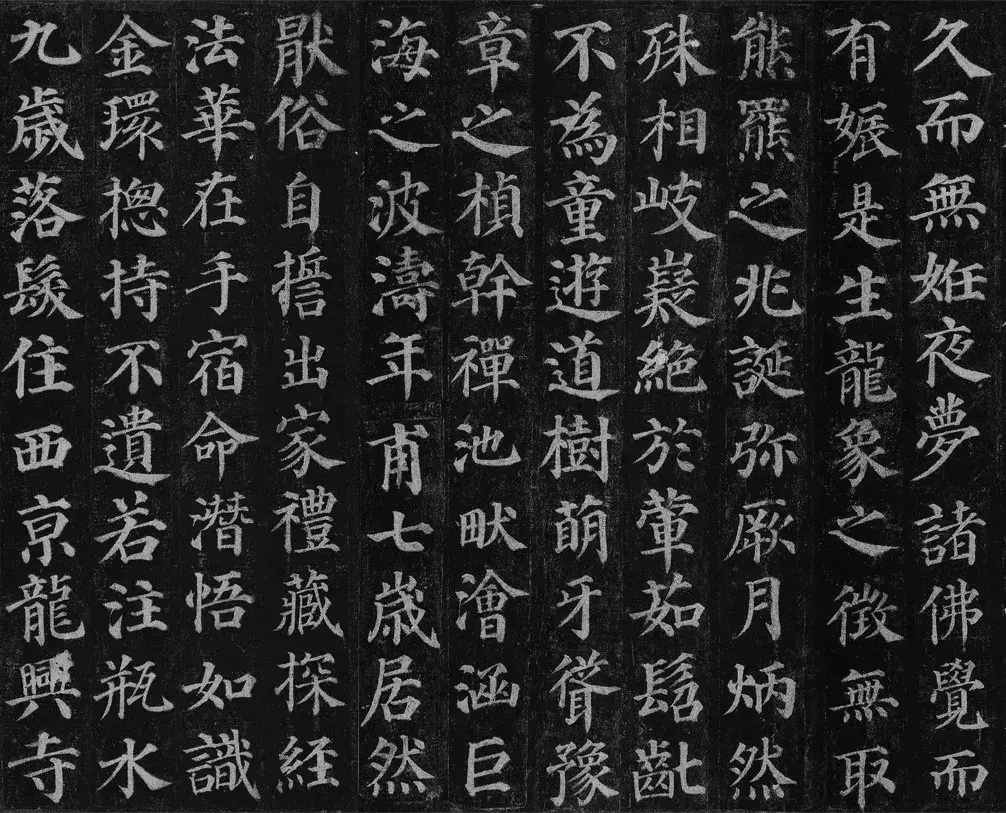 久而無姙夜夢諸佛覺而
有娠是生龍象之徵無取
熊羆之兆誕弥厥月炳然
殊相岐嶷絕於葷茹髫齔
不為童遊道樹萌牙聳豫
章之楨幹禪池畎澮涵巨
海之波濤年甫七歲居然
猒俗自誓出家禮藏探経
法華在手宿命潛悟如識
金環揔持不遺若注瓶水
九歲落髮住西亰龍興寺